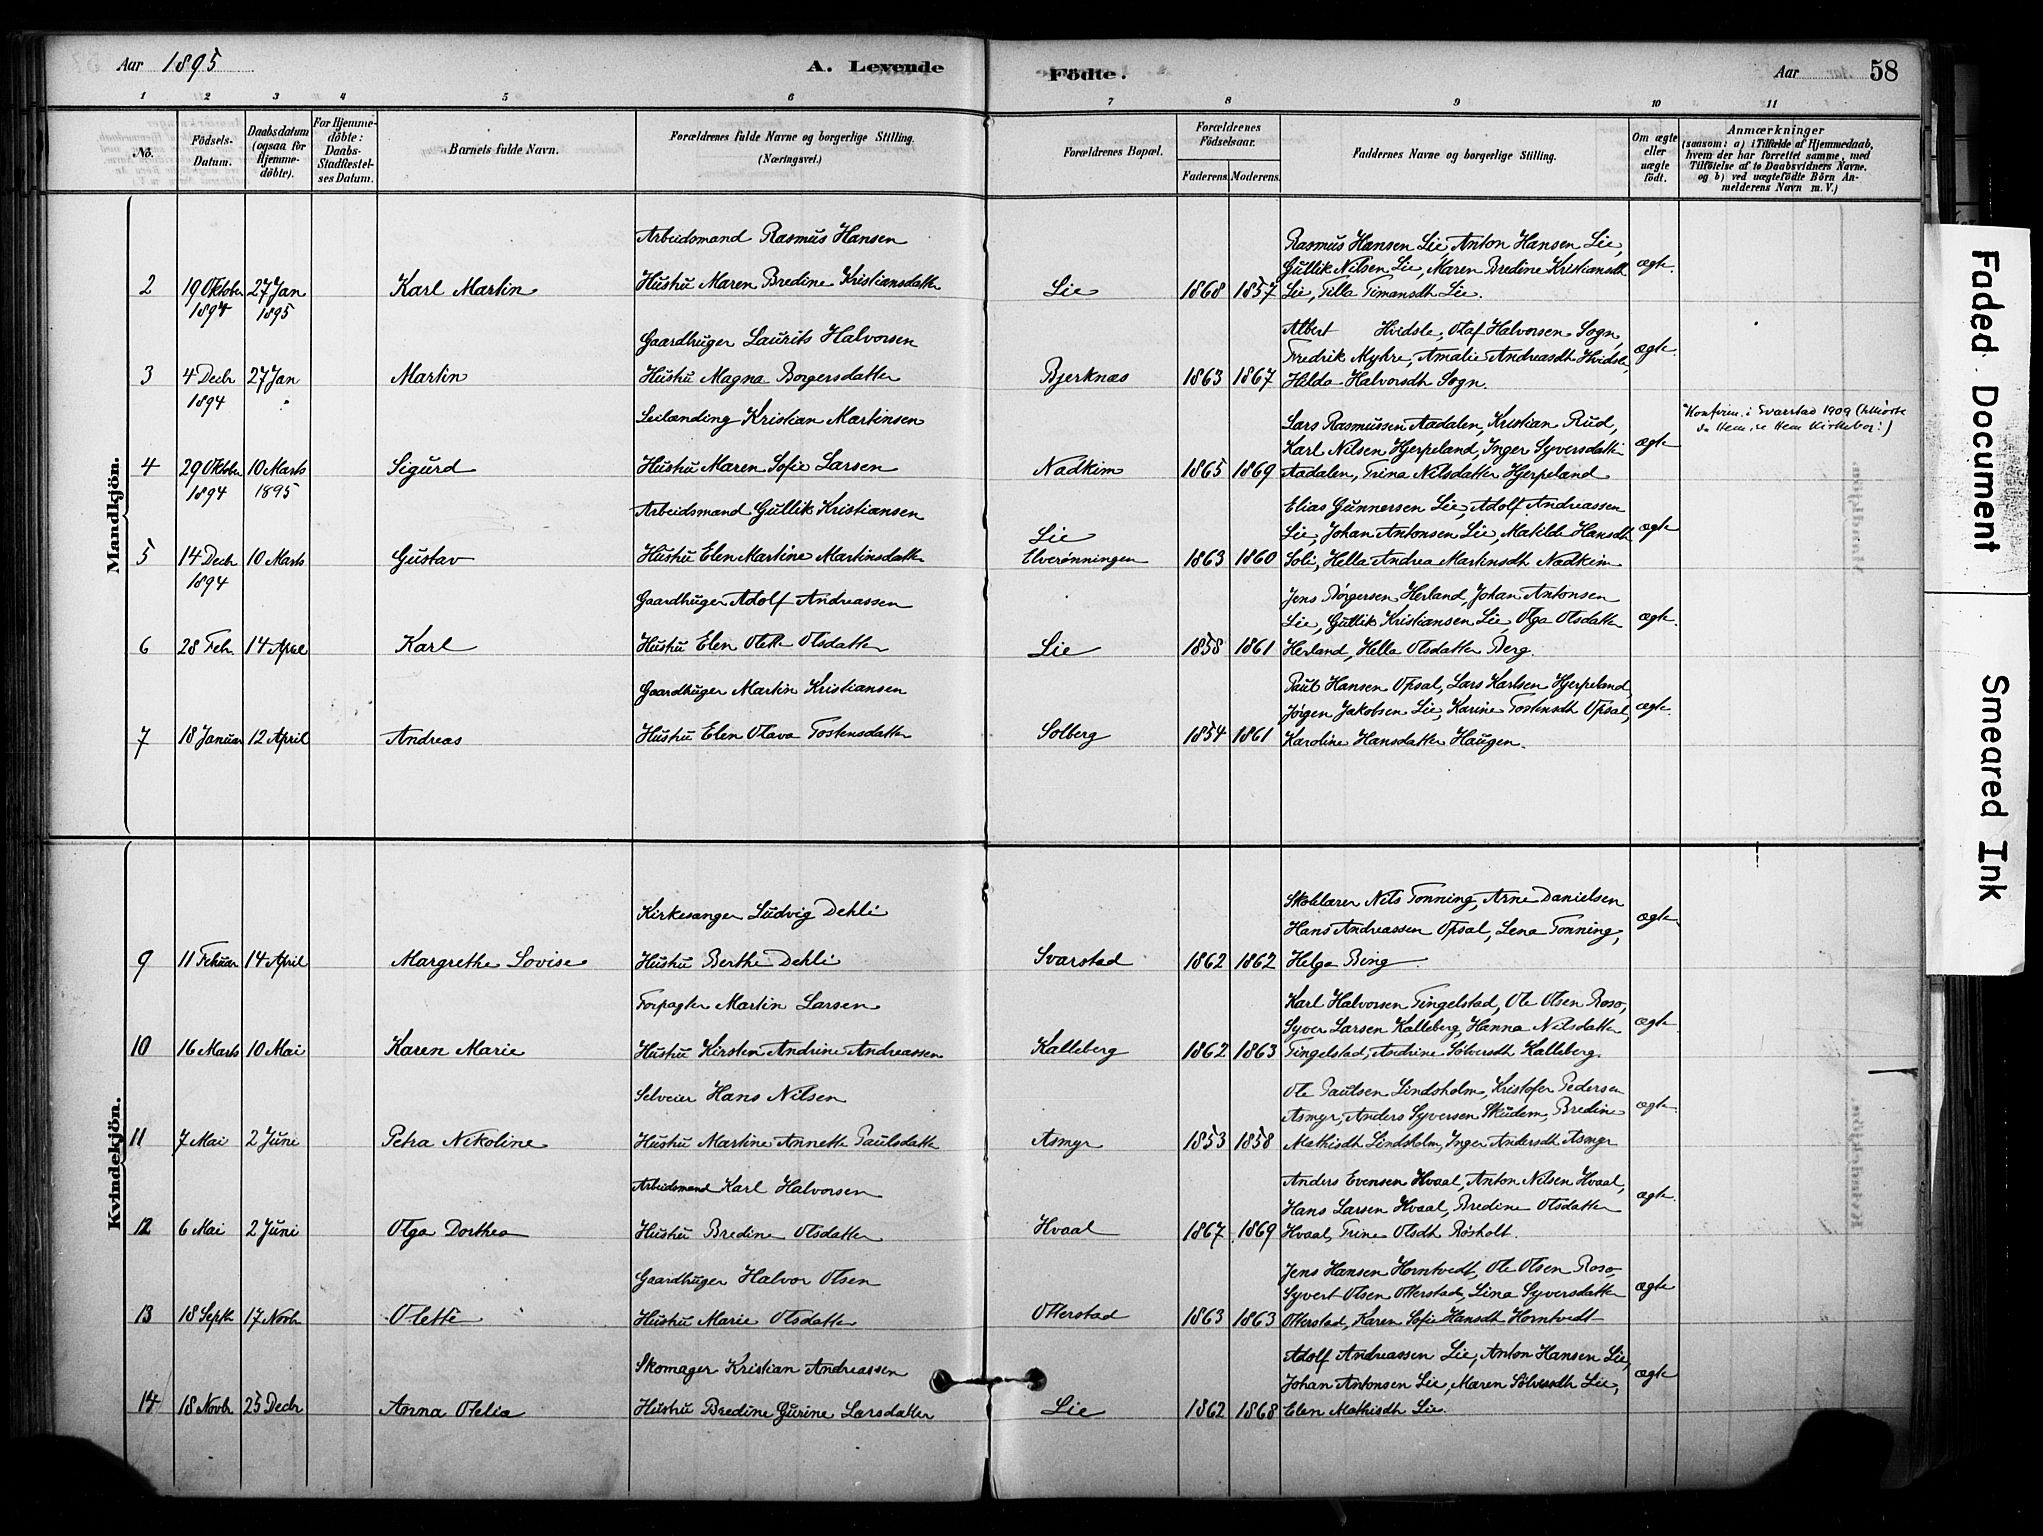 Aar 1895 A. Levende Födte. Aar 58
1 2 3 4 5 6 7 8 9 10 11
No.
Födsels-Datum.
Daabsdatum (ogsaa for Hjemmedöbte).
For Hjemmedöbte: Daabs-Stadfestelses Datum.
Barnets fulde Navn.
Forældrenes fulde Navne og borgerlige Stilling. (Næringsvei.)
Forældrenes Bopæl.
Forældrenes Födselsaar.
Faderens. Moderens.
Faddernes Navne og borgerlige Stilling.
Om ægte eller uægte födt.
Anmærkninger
(saasom: a) i Tilfælde af Hjemmedaab,
hvem der har forrettet samme, med
Tilföielse af to Daabsvidners Navne.
og b) ved uægtefödte Börn Anmelderens Navn m. V.)
Mandkjön.
Arbeidsmand Rasmus Hansen Rasmus Hansen Lie, Anton Hansen Lie,
Gullik Nilsen Lie, Maren Bredine Kristiansdt ægte.
2 19 Oktober 27 Jan Karl Martin Hustru Maren Bredine Kristiansdatter Lie 1868 1857 Lie, Tilla Timansdt Lie.
1894 1895
Gaardbruger Laurits Halvorsen Albert Hvidsle, Olaf Halvorsen Sogn,
Fredrik Myhre, Amalie Andreasdt Hvidsle, ægte.
3 4 Decbr 27 Jan Martin Hustru Magna Borgersdatter Bjerknæs 1863 1867 Hilda Halvorsdt Sogn.
1894
Leilænding Kristian Martinsen Lars Rasmussen Aadalen, Kristian Rud, Konfirm. i Svarstad 1909
Karl Nilsen Hjerpeland, Inger Syversdatter ægte
4 29 Oktober 10 Marts Sigurd Hustru Maren Sofie Larsen Nadkim 1865 1869 Aadalen, Trina Nilsdatter Hjerpeland
1894 1895
Arbeidsmand Gullik Kristiansen Elias Gunnersen Lie, Adolf Andreassen
Lie Lie, Johan Antonsen Lie, Matilde Hansdt ægte
5 14 Decbr 10 Marts Gustav Hustru Elen Martine Martinsdatter Elverønningen 1863 1860 Soli, Hella Andrea Martinsdt Nadkim
1894
Gaardbruger Adolf Andreassen Jens Børgersen Herland, Johan Antonsen
Lie, Gullik Kristiansen Lie, Olga Olsdatter ægte.
6 28 Febr. 14 April Karl Hustru Elen Olette Olsdatter Lie 1858 1861 Herland, Hella Olsdatter Berg.
Gaardbruger Martin Kristiansen Paul Hansen Opsal, Lars Karlsen Hjerpeland,
Jørgen Jakobsen Lie, Karine Tostensdt Opsal, ægte.
7 18 Januar 12 April Andreas Hustru Elen Olava Tostensdatter Solberg 1854 1861 Karoline Hansdatter Haugen.
Kvindekjön.
Kirkesanger Ludvig Dehli Skolelærer Nils Tonning, Arne Danielsen
Hans Andreassen Opsal, Lena Tonning, ægte
9 11 Februar 14 April Margrethe Lovise Hustru Berthe Dehli Svarstad 1862 1862 Helga Bing.
Forpagter Martin Larsen Karl Halvorsen Tingelstad, Ole Olsen Roso,
Syver Larsen Kalleberg, Hanna Nilsdatter ægte.
10 16 Marts 10 Mai Karen Marie Hustru Kirsten Andrine Andreassen Kalleberg 1862 1863 Tingelstad, Andrine Sølversdt Kalleberg.
Selveier Hans Nilsen Ole Paulsen Lindsholm, Kristofer Pedersen
Asmyr, Anders Syversen Skudem, Bredine ægte.
11 7 Mai 2 Juni Petra Nikoline Hustru Martine Annette Paulsdatter Asmyr 1853 1858 Mathisdt Lindsholm, Inger Andersdt Asmyr
Arbeidsmand Karl Halvorsen Anders Evensen Hvaal, Anton Nilsen Hvaal,
Hans Larsen Hvaal, Bredine Olsdatter ægte.
12 6 Mai 2 Juni Olga Dorthea Hustru Bredine Olsdatter Hvaal 1867 1869 Hvaal, Trine Olsdt Røsholt.
Gaardbruger Halvor Olsen Jens Hansen Horntvedt, Ole Olsen Roso,
Syvert Olsen Otterstad, Lina Syversdatter ægte
13 18 Septb 17 Novb Olette Hustru Marie Olsdatter Otterstad 1863 1863 Otterstad, Karen Sofie Hansdt Horntvedt
Skomager Kristian Andreassen Adolf Andreassen Lie, Anton Hansen Lie,
Johan Antonsen Lie, Maren Sølversdt Lie, ægte
14 18 Novbr 25 Decbr Anna Otelia Hustru Bredine Gurine Larsdatter Lie 1862 1868 Elen Mathisdt Lie.
Faded Document Smeared Ink